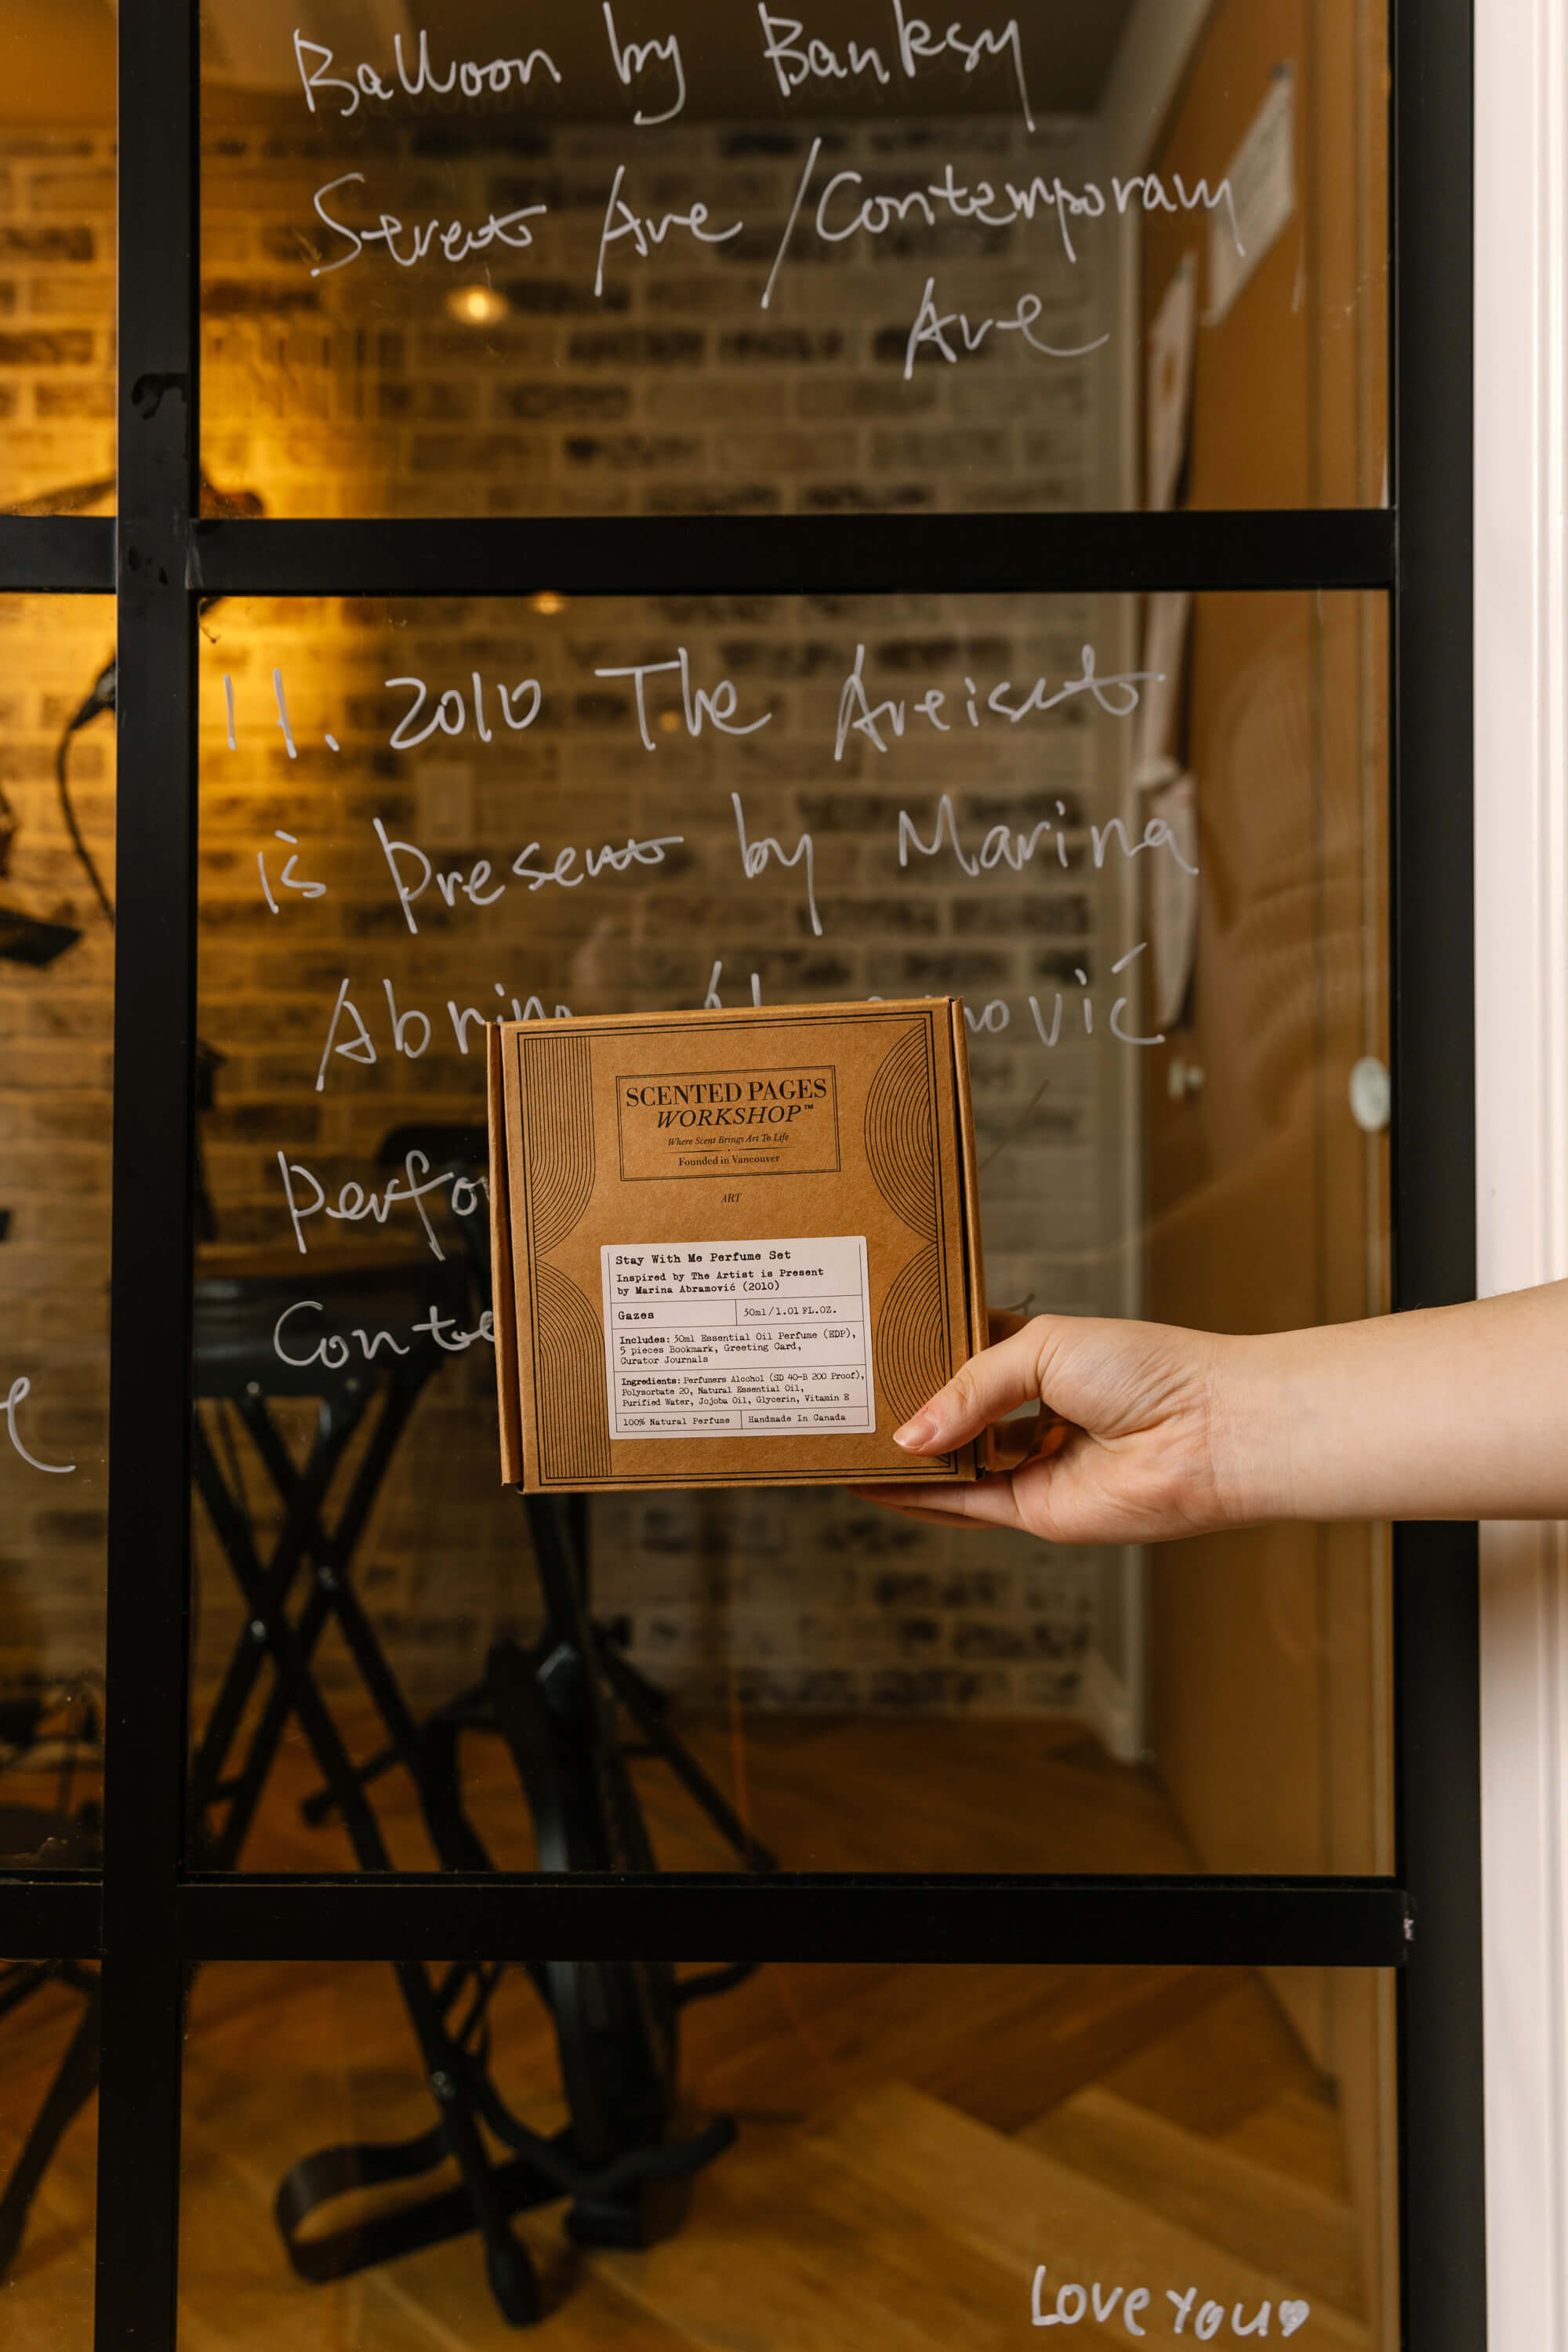 Balloon by Banksy
Street Art / Contemporary
Art
11. 2010 The Artist
is Present by Marina
ović
Perfo
Conte
SCENTED PAGES
WORKSHOP™
Where Scent Brings Art To Life
Founded in Vancouver
ART
Stay With Me Perfume Set
Inspired by The Artist is Present
by Marina Abramović (2010)
Gazes
30ml/1.01 FL.OZ.
Includes: 30ml Essential Oil Perfume (EDP),
5 pieces Bookmark, Greeting Card,
Curator Journals
Ingredients: Perfumers Alcohol (SD 40-B 200 Proof),
Polysorbate 20, Natural Essential Oil,
Purified Water, Jojoba Oil, Glycerin, Vitamin E
100% Natural Perfume
Handmade In Canada
Love You♥